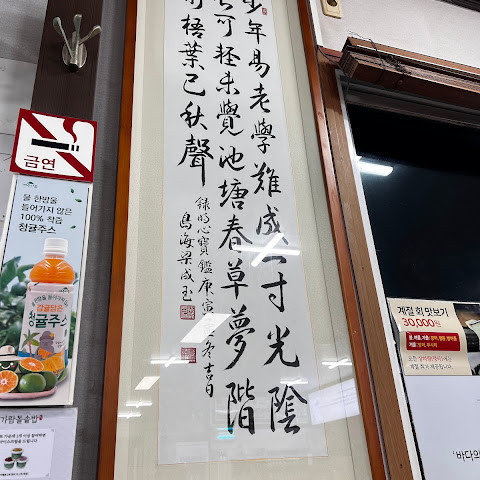 少年易老學難成一寸光陰
可輕未覺池塘春草夢階
梧葉已秋聲
錄明心寶鑑庚寅冬吉日
島海梁成玉
금연
물 한방울
들어가지 않은
100% 착즙
청귤주스
청귤주스
가람돌솥밥
계절 회 맛보기
30,000원
'바다의